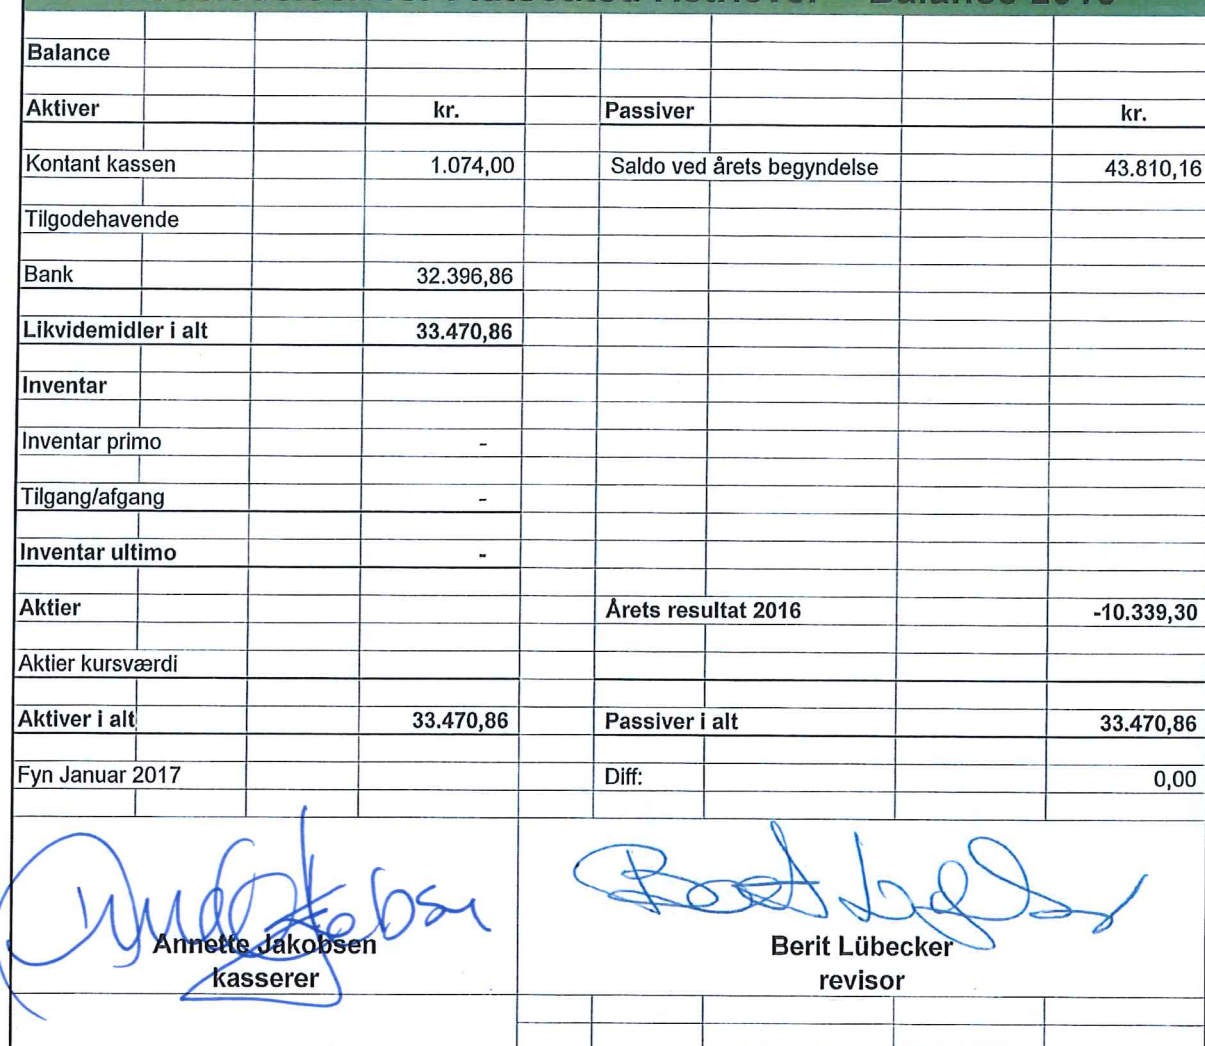 Balance
Aktiver kr. Passiver kr.
Kontant kassen 1.074,00 Saldo ved årets begyndelse 43.810,16
Tilgodehavende
Bank 32.396,86
Likvidemidler i alt 33.470,86
Inventar
Inventar primo -
Tilgang/afgang -
Inventar ultimo -
Aktier Årets resultat 2016 -10.339,30
Aktier kursværdi
Aktiver i alt 33.470,86 Passiver i alt 33.470,86
Fyn Januar 2017 Diff: 0,00
Annette Jakobsen Berit Lübecker
kasserer revisor